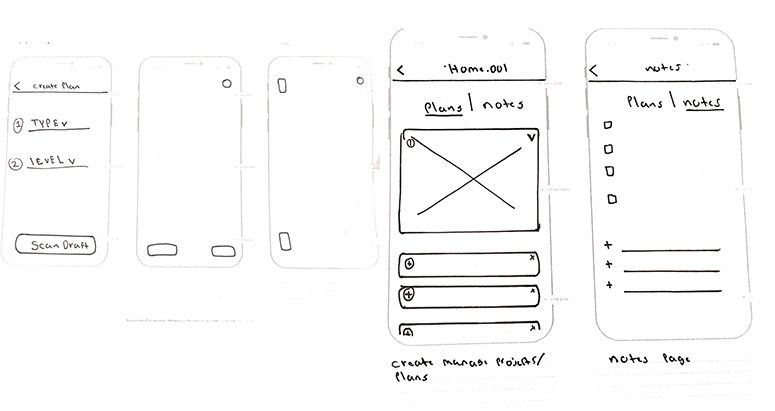 < create Plan
1 TYPE v
2 LEVEL v
Scan Draft
< Home.001
Plans | notes
create manage projects/
Plans
< notes
Plans | notes
notes Page